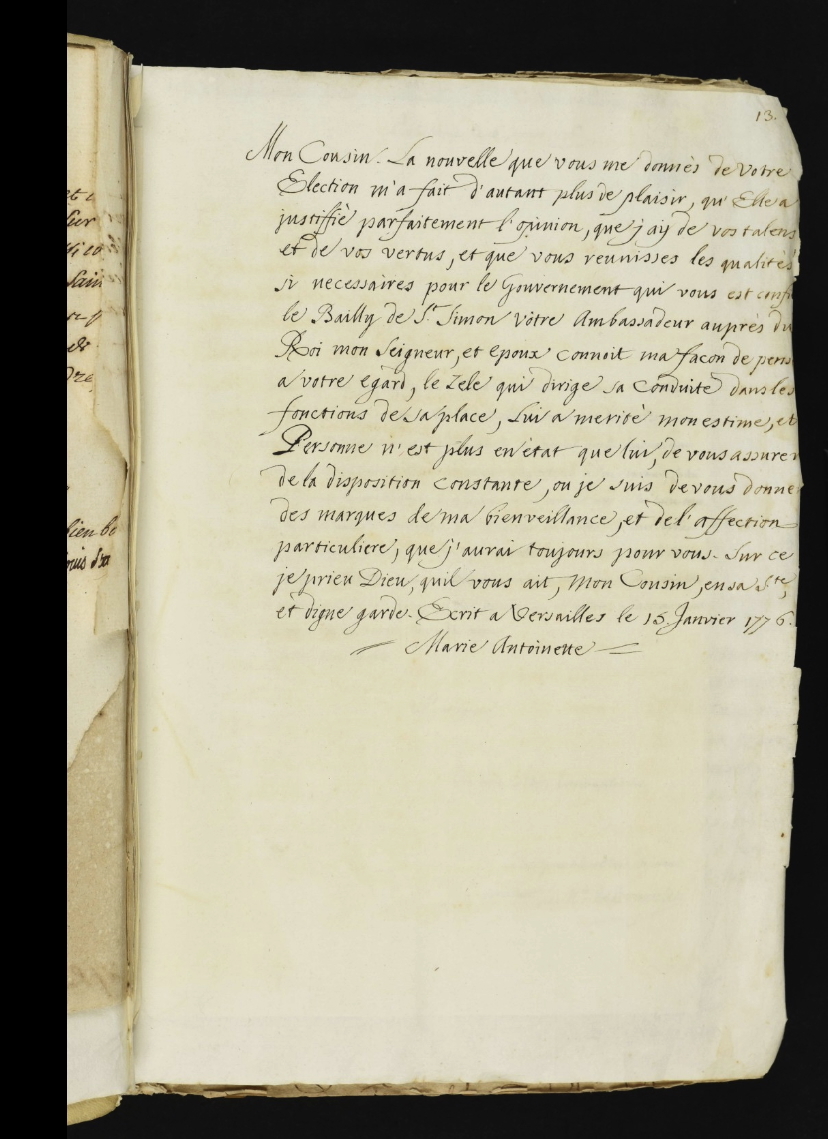 13.
Mon Cousin. La nouvelle que vous me donnès de votre
Election m'a fait d'autant plus de plaisir, qu'Elle a
justiffié parfaitement l'opinion, que j'aÿ de vos talens
et de vos vertus, et que vous reunisses les qualités
si necessaires pour le Gouvernement qui vous est confi
le Bailly de S.t Simon vôtre Ambassadeur auprés du
Roi mon Seigneur, et Epoux connoit ma façon de pens
a votre Egard, le Zele qui dirige sa Conduite dans les
fonctions de sa place, Lui a merité mon estime, et
Personne n'est plus en état que lui, de vous assurer
de la disposition constante, ou je suis de vous donne
des marques de ma bienveillance, et de l'affection
particuliere, que j'aurai toujours pour vous. Sur ce
je prieu Dieu, quil vous ait, Mon Cousin, en sa S.te,
et digne garde. Ecrit a Versailles le 15. Janvier 1776.
Marie Antoinette